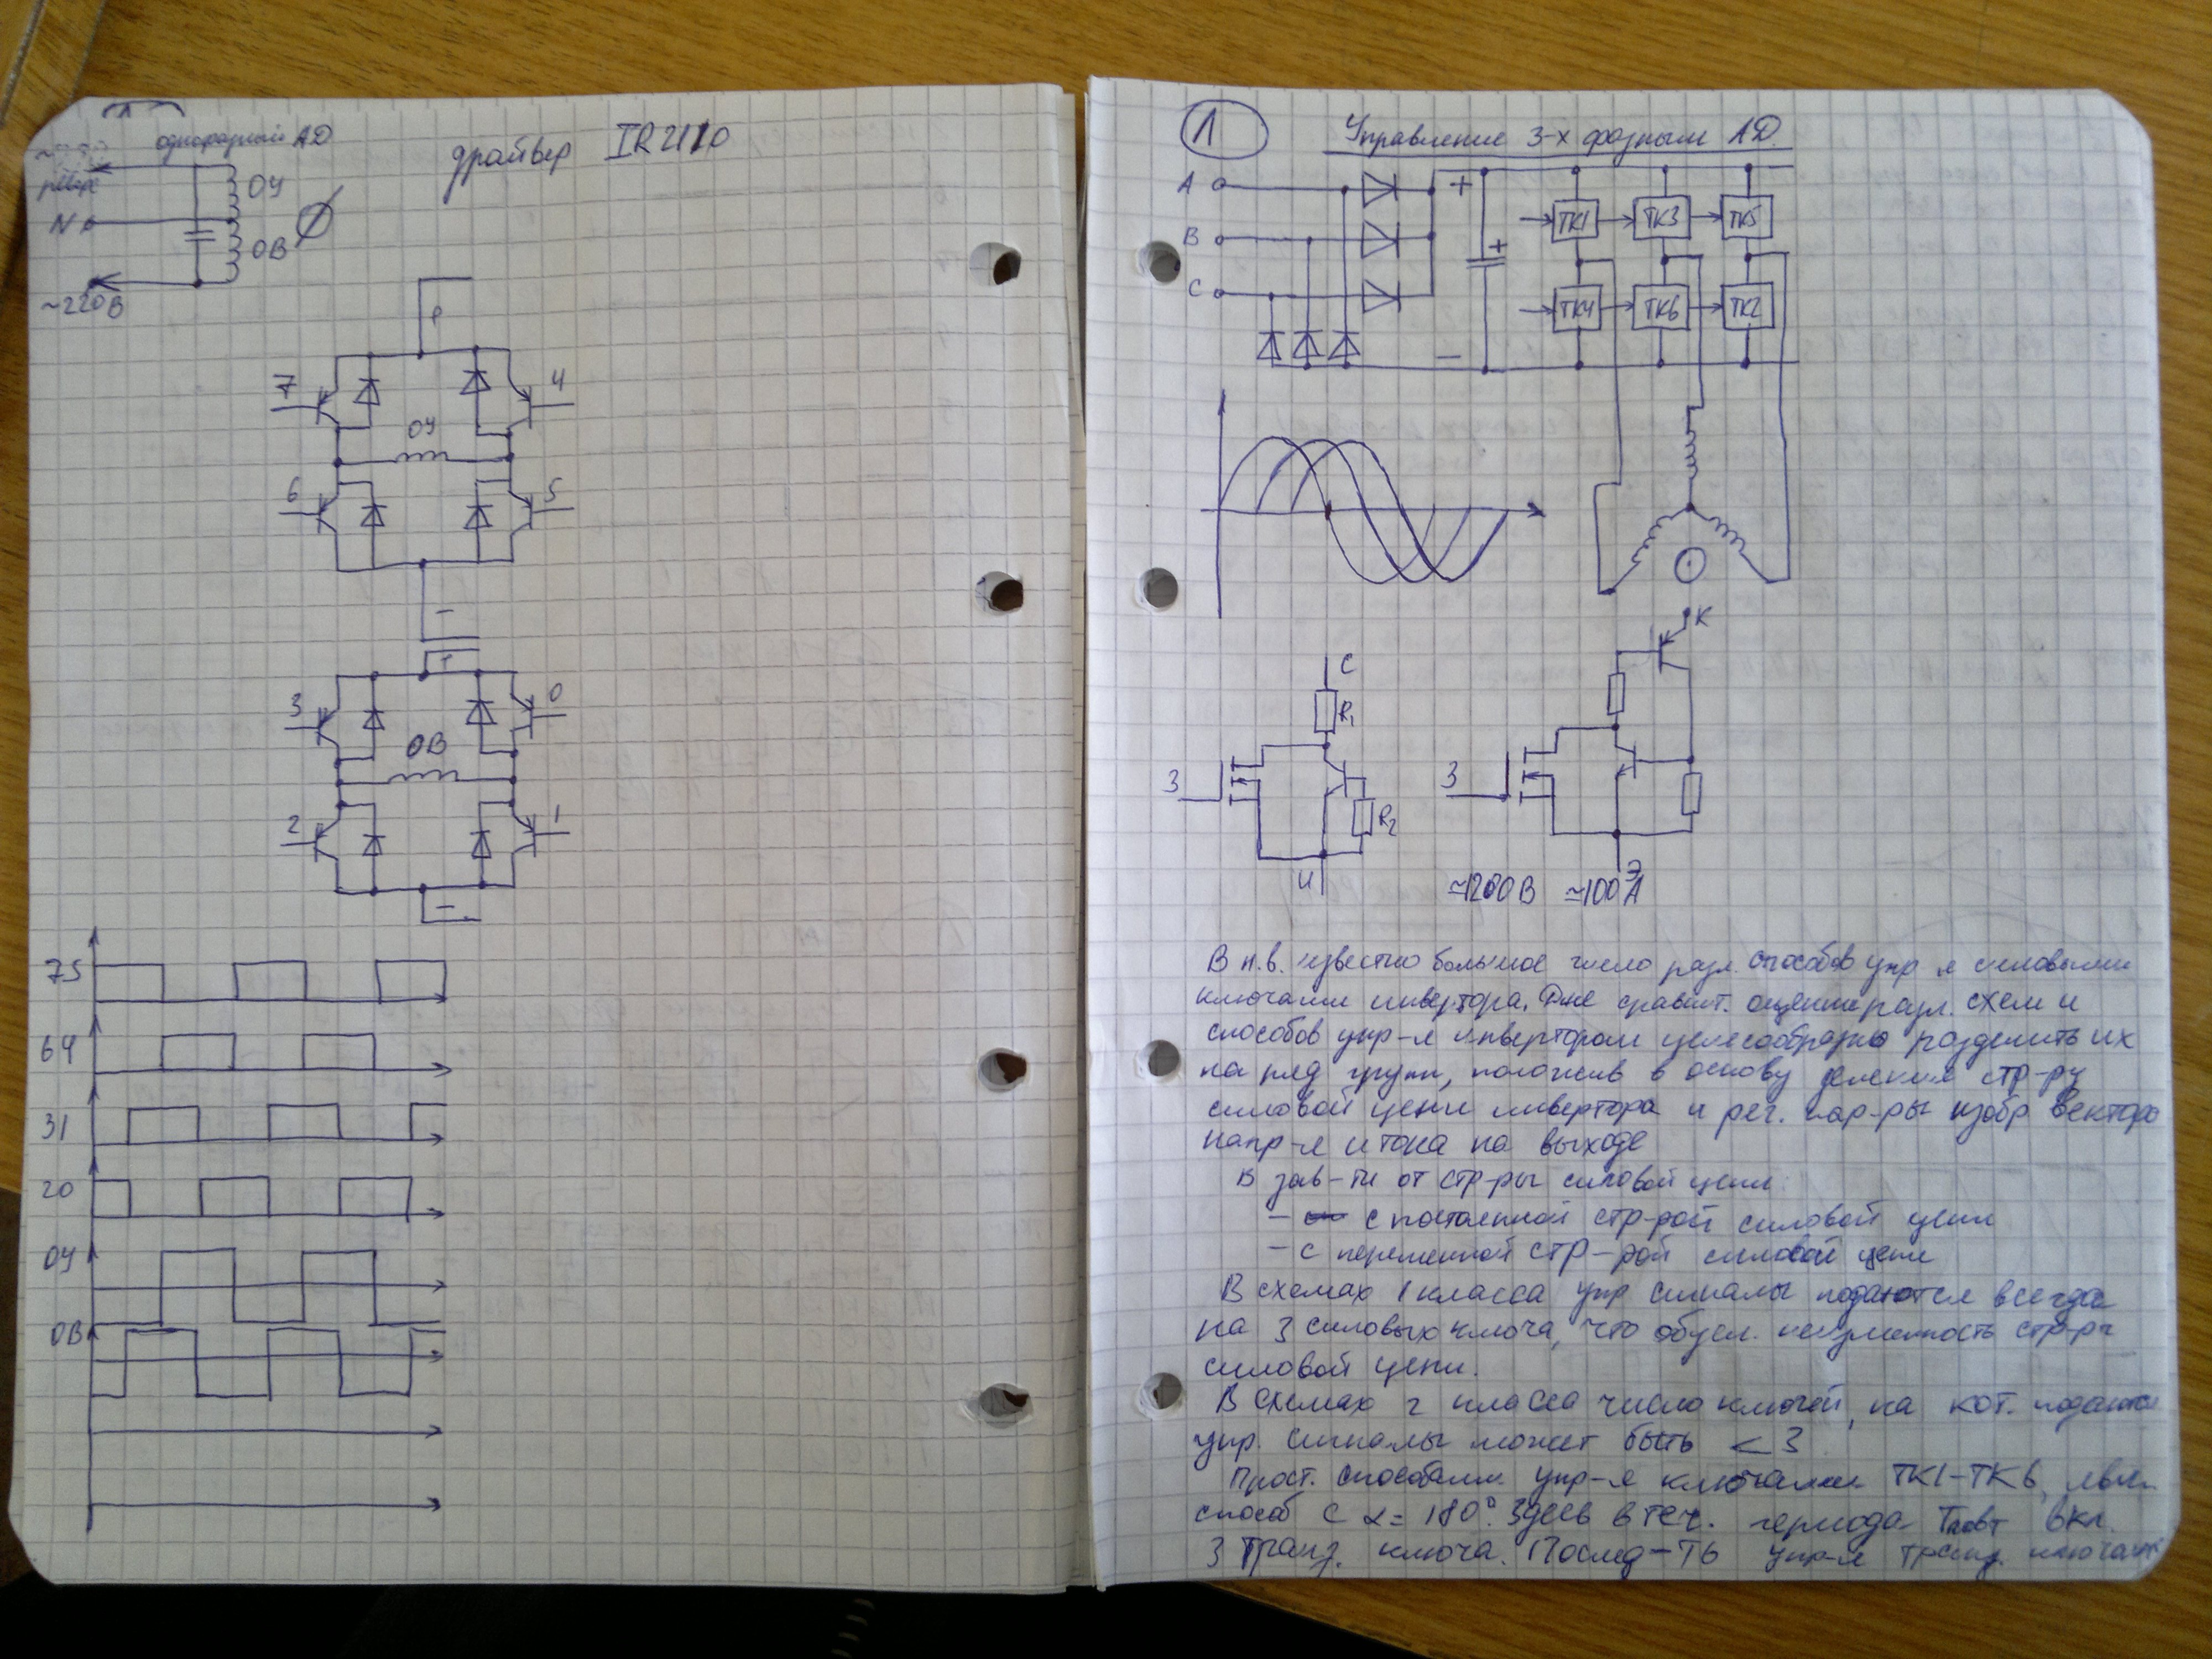 однофазный АД
драйвер IR2110
реверс
N
~220В
ОУ
ОВ
7
4
ОУ
6
5
-
3
0
ОВ
2
1
-
75
64
31
20
ОУ
ОВ
1
Управление 3-х фазным АД.
A
B
C
+
+
-
ТК1
ТК3
ТК5
ТК4
ТК6
ТК2
К
С
R1
З
R2
И
З
Э
≈1200В ≈100А
В н.в. известно большое число разл. способов упр-я силовыми
ключами инвертора. Для сравнит. оценки разл. схем и
способов упр-я инвертором целесообразно разделить их
на ряд групп, положив в основу деления стр-ру
силовой цепи инвертора и рег. пар-ры изобр вектора
напр-я и тока на выходе
В зав-ти от стр-ры силовой цепи:
- с постоянной стр-рой силовой цепи
- с переменной стр-рой силовой цепи
В схемах 1 класса упр сигналы подаются всегда
на 3 силовых ключа, что обусл. неизменность стр-ры
силовой цепи.
В схемах 2 класса число ключей, на кот. подаются
упр. сигналы может быть < 3
Прост. способами упр-я ключами ТК1-ТК6, явл.
способ с α = 180°. Здесь в теч. периода Tповт вкл.
3 транз. ключа. Послед-ть упр-я транз. ключами